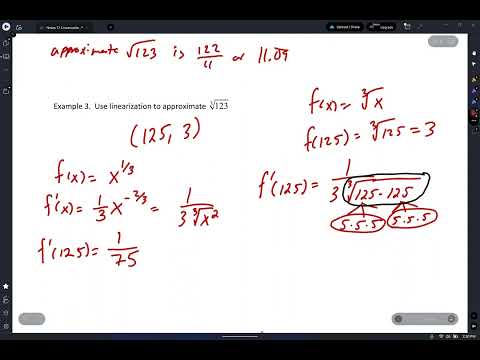 approximate √123 is 122/11 or 11.09
Example 3. Use linearization to approximate ∛123
(125, 3)
f(x) = x^1/3
f'(x) = 1/3 x^-2/3 = 1/(3∛x²)
f'(125) = 1/75
f(x) = ∛x
f(125) = ∛125 = 3
f'(125) = 1/(3∛125·125)
5·5·5 5·5·5